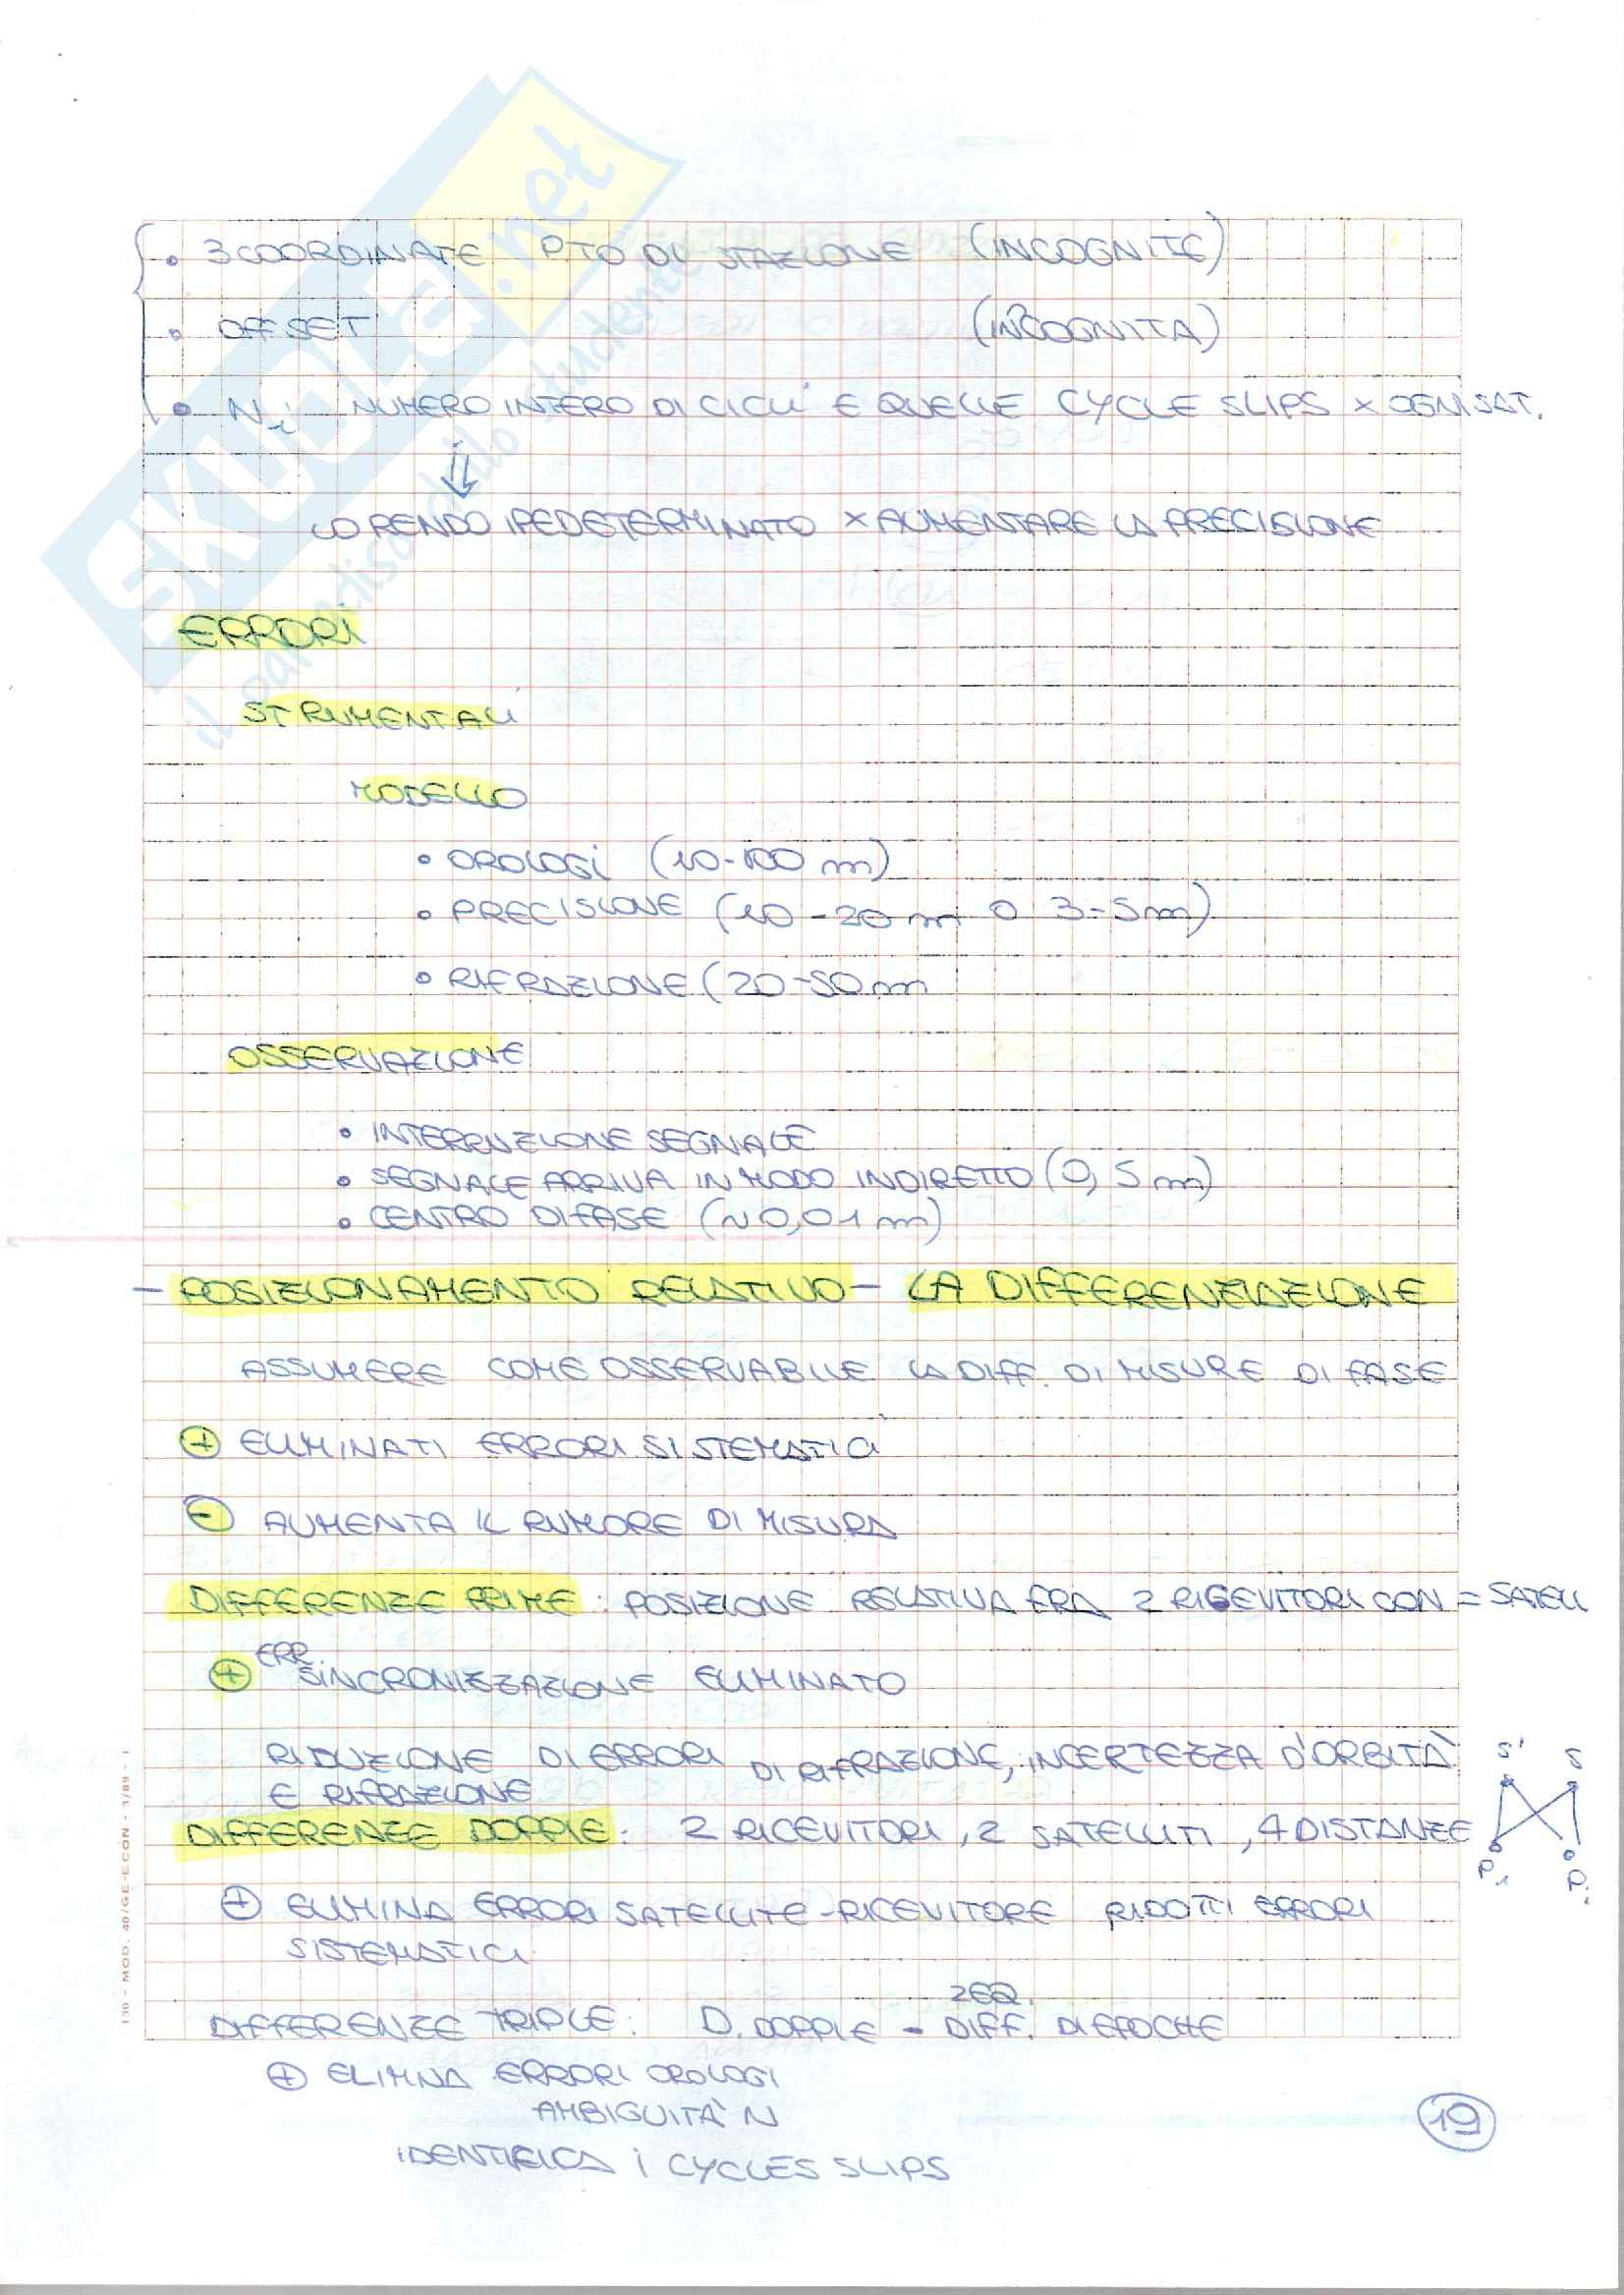 • 3 COORDINATE PTO DI STAZIONE (INCOGNITE)
• OFFSET (INCOGNITA)
• Ni NUMERO INTERO DI CICLI E QUELLE CYCLE SLIPS x OGNI SAT.
⇓
LO RENDO IPEDETERMINATO x AUMENTARE LA PRECISIONE
ERRORI
STRUMENTALI
MODELLO
• OROLOGI (10-100 m)
• PRECISIONE (10-20 m o 3-5m)
• RIFRAZIONE (20-50 m
OSSERVAZIONE
• INTERRUZIONE SEGNALE
• SEGNALE ARRIVA IN MODO INDIRETTO (0,5 m)
• CENTRO DI FASE (~0,01 m)
- POSIZIONAMENTO RELATIVO - LA DIFFERENZIAZIONE
ASSUMERE COME OSSERVABILE LA DIFF. DI MISURE DI FASE
⊕ ELIMINATI ERRORI SISTEMATICI
⊖ AUMENTA IL RUMORE DI MISURA
DIFFERENZE PRIME: POSIZIONE RELATIVA FRA 2 RICEVITORI CON = SATELLI
⊕ ERR. SINCRONIZZAZIONE ELIMINATO
RIDUZIONE DI ERRORI DI RIFRAZIONE, INCERTEZZA D'ORBITÀ
E RIFRAZIONE
S' S
DIFFERENZE DOPPIE: 2 RICEVITORI, 2 SATELLITI, 4 DISTANZE
P1 P2
⊕ ELIMINA ERRORI SATELLITE-RICEVITORE RIDOTTI ERRORI
SISTEMATICI
2 EQ.
DIFFERENZE TRIPLE: D. DOPPIE - DIFF. DI EPOCHE
⊕ ELIMINA ERRORI OROLOGI
AMBIGUITÀ N
IDENTIFICA i CYCLES SLIPS
19
SKUOLA.net
il paradiso dello studente
130 - MOD. 40/GE-ECON - 1/89 - 1